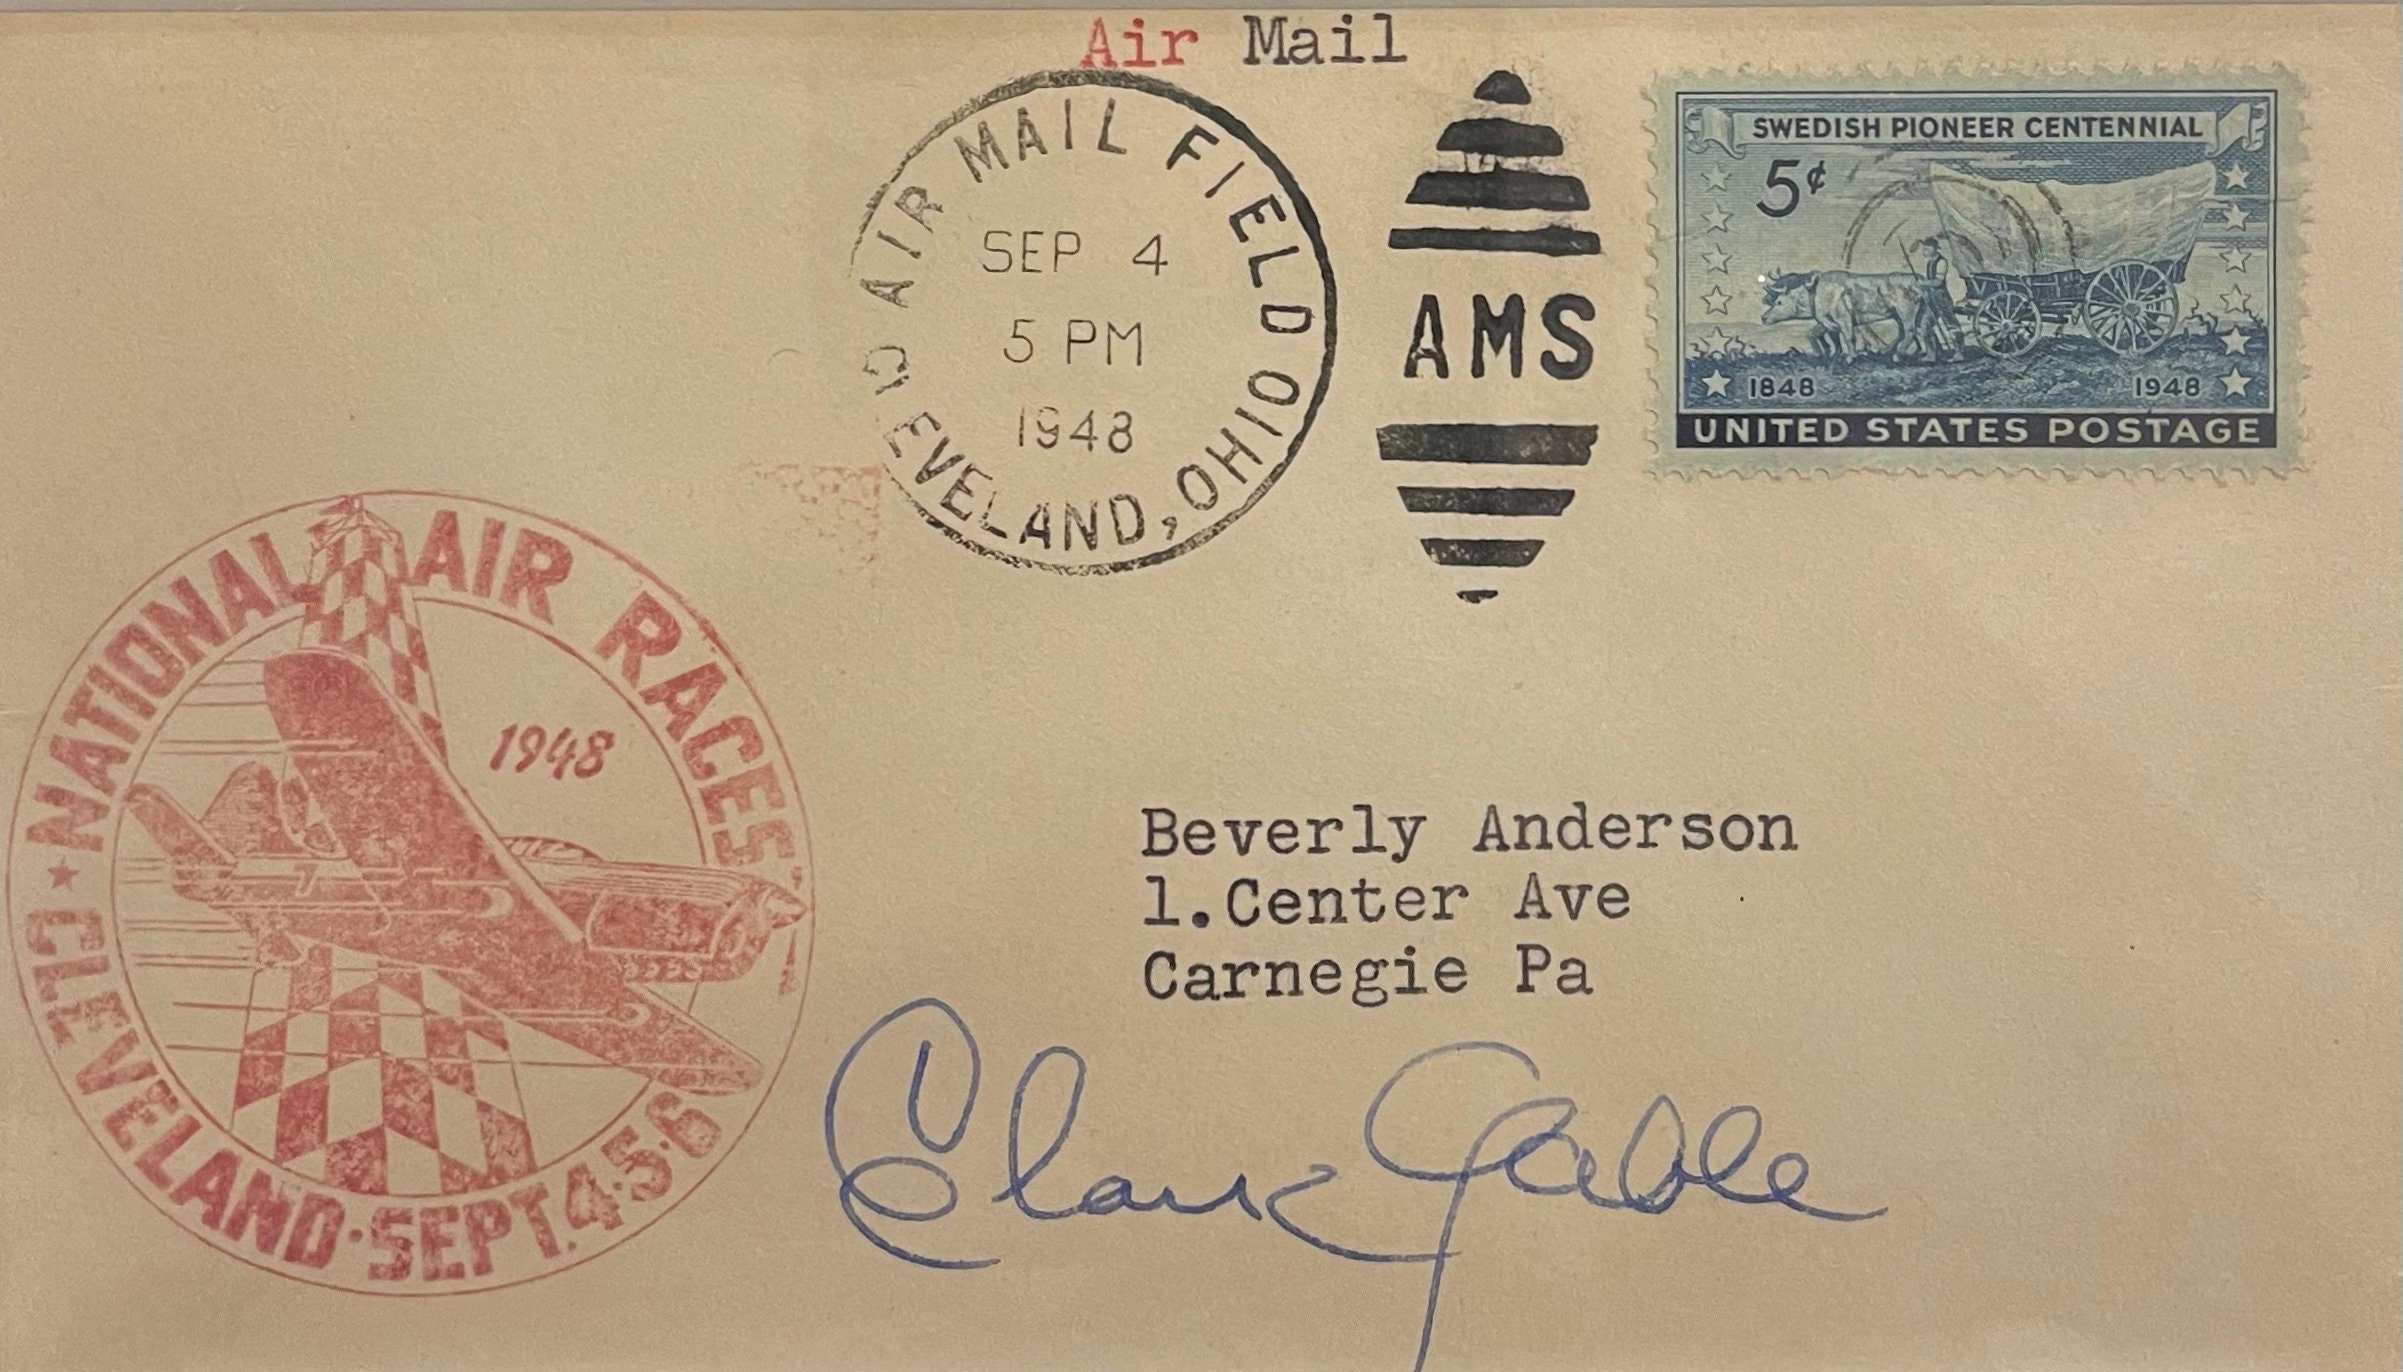 Air Mail
AIR MAIL FIELD
SEP 4
5 PM
1948
CLEVELAND, OHIO
AMS
SWEDISH PIONEER CENTENNIAL
5¢
1848 1948
UNITED STATES POSTAGE
NATIONAL AIR RACES
1948
CLEVELAND · SEPT. 4·5·6
Beverly Anderson
1.Center Ave
Carnegie Pa
Clark Gable